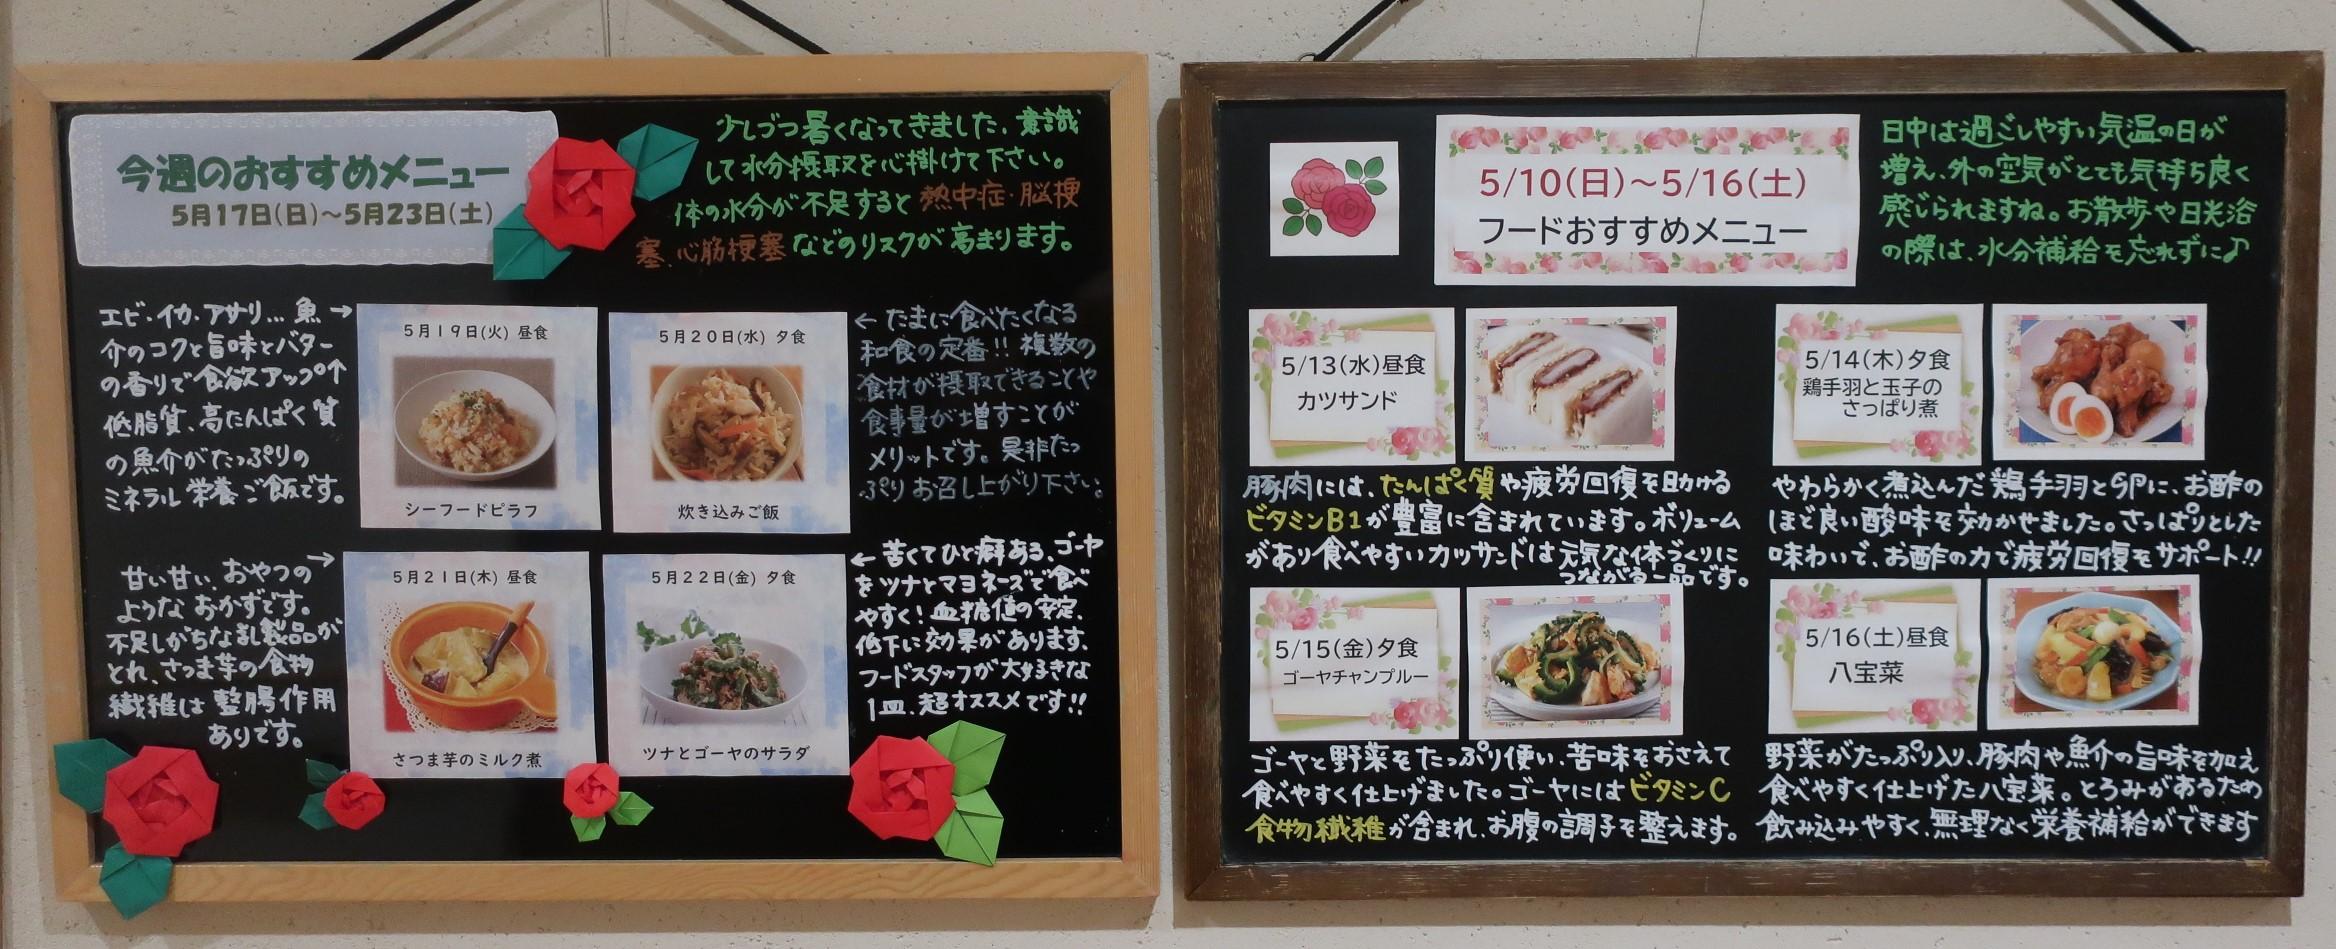 今週のおすすめメニュー
5月17日(日)～5月23日(土)
少しづつ暑くなってきました、意識
して水分摂取を心掛けて下さい。
体の水分が不足すると熱中症・脳梗
塞、心筋梗塞などのリスクが高まります。
エビ・イカ・アサリ…魚→
介のコクと旨味とバター
の香りで食欲アップ↑
低脂質、高たんぱく質
の魚介がたっぷりの
ミネラル栄養ご飯です。
5月19日(火) 昼食
シーフードピラフ
5月20日(水) 夕食
炊き込みご飯
←たまに食べたくなる
和食の定番!! 複数の
食材が摂取できることや
食事量が増すことが
メリットです。是非たっ
ぷりお召し上がり下さい。
甘い甘い、おやつの→
ようなおかずです。
不足しがちな乳製品が
とれ、さつま芋の食物
繊維は整腸作用
ありです。
5月21日(木) 昼食
さつま芋のミルク煮
5月22日(金) 夕食
ツナとゴーヤのサラダ
←苦くてひと癖ある、ゴーヤ
をツナとマヨネーズで食べ
やすく！血糖値の安定、
低下に効果があります、
フードスタッフが大好きな
1皿、超オススメです!!
5/10(日)～5/16(土)
フードおすすめメニュー
日中は過ごしやすい気温の日が
増え、外の空気がとても気持ち良く
感じられますね。お散歩や日光浴
の際は、水分補給を忘れずに♪
5/13(水)昼食
カツサンド
豚肉には、たんぱく質や疲労回復を助ける
ビタミンB1が豊富に含まれています。ボリューム
があり食べやすいカツサンドは元気な体づくりに
つながる一品です。
5/14(木)夕食
鶏手羽と玉子の
さっぱり煮
やわらかく煮込んだ鶏手羽と卵に、お酢の
ほど良い酸味を効かせました。さっぱりとした
味わいで、お酢の力で疲労回復をサポート!!
5/15(金)夕食
ゴーヤチャンプルー
ゴーヤと野菜をたっぷり使い、苦味をおさえて
食べやすく仕上げました。ゴーヤにはビタミンC
食物繊維が含まれ、お腹の調子を整えます。
5/16(土)昼食
八宝菜
野菜がたっぷり入り、豚肉や魚介の旨味を加え
食べやすく仕上げた八宝菜。とろみがあるため
飲み込みやすく、無理なく栄養補給ができます